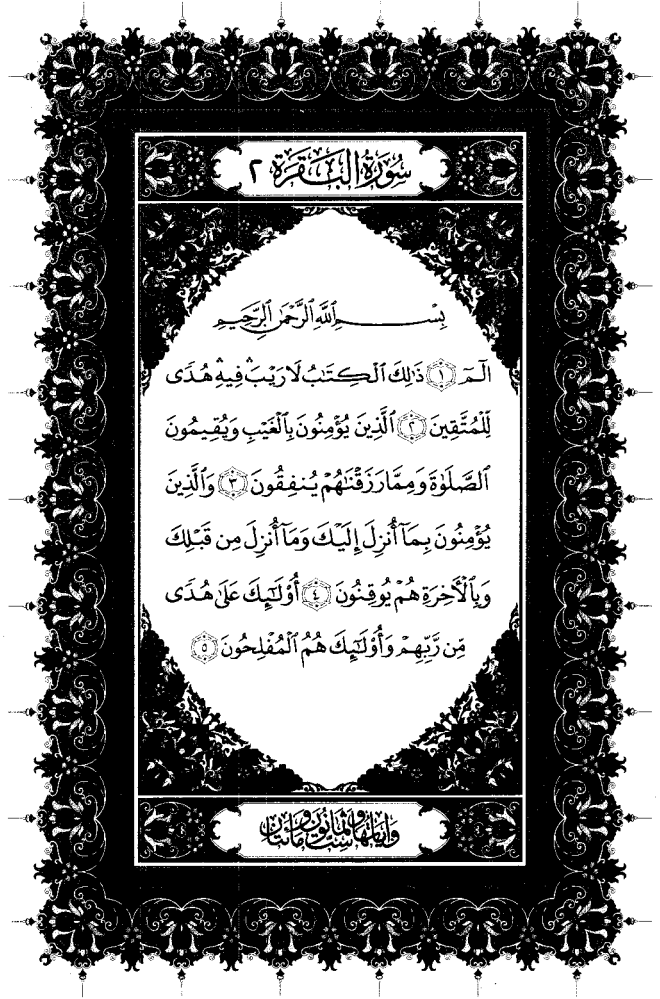 سُورَةُ الْبَقَرَةِ ٢
بِسْمِ ٱللَّهِ ٱلرَّحْمَٰنِ ٱلرَّحِيمِ
الٓمٓ ١ ذَٰلِكَ ٱلْكِتَٰبُ لَا رَيْبَ ۛ فِيهِ ۛ هُدًى
لِّلْمُتَّقِينَ ٢ ٱلَّذِينَ يُؤْمِنُونَ بِٱلْغَيْبِ وَيُقِيمُونَ
ٱلصَّلَوٰةَ وَمِمَّا رَزَقْنَٰهُمْ يُنفِقُونَ ٣ وَٱلَّذِينَ
يُؤْمِنُونَ بِمَآ أُنزِلَ إِلَيْكَ وَمَآ أُنزِلَ مِن قَبْلِكَ
وَبِٱلْأَخِرَةِ هُمْ يُوقِنُونَ ٤ أُوْلَٰٓئِكَ عَلَىٰ هُدًى
مِّن رَّبِّهِمْ وَأُوْلَٰٓئِكَ هُمُ ٱلْمُفْلِحُونَ ٥
وآياتها ست وثمانون ومائتان